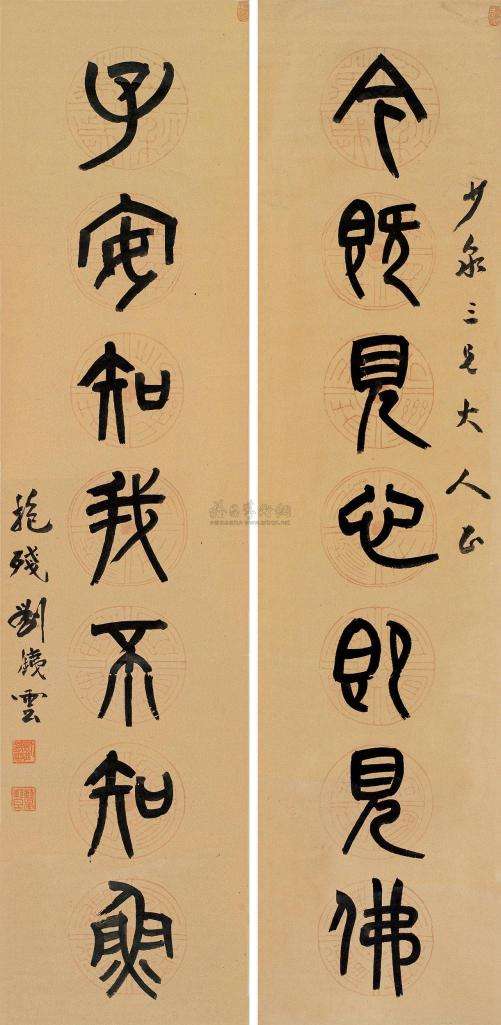 少泉三兄大人正
今既見心即見佛
子安知我不知魚
抱殘劉鐵雲